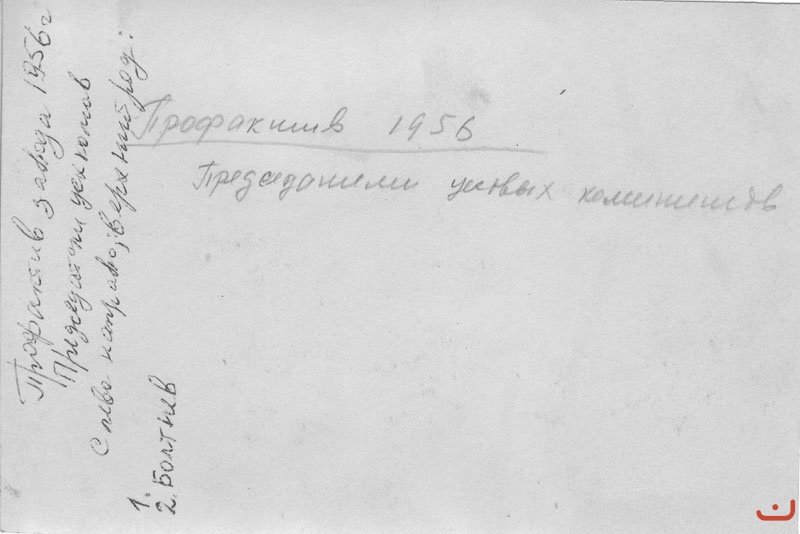 Профактив 1956
Председатели цеховых комитетов
Профактив завода 1956 г
Председатели цехкомов
Слева направо; верхний ряд:
1.
2. Болтнев